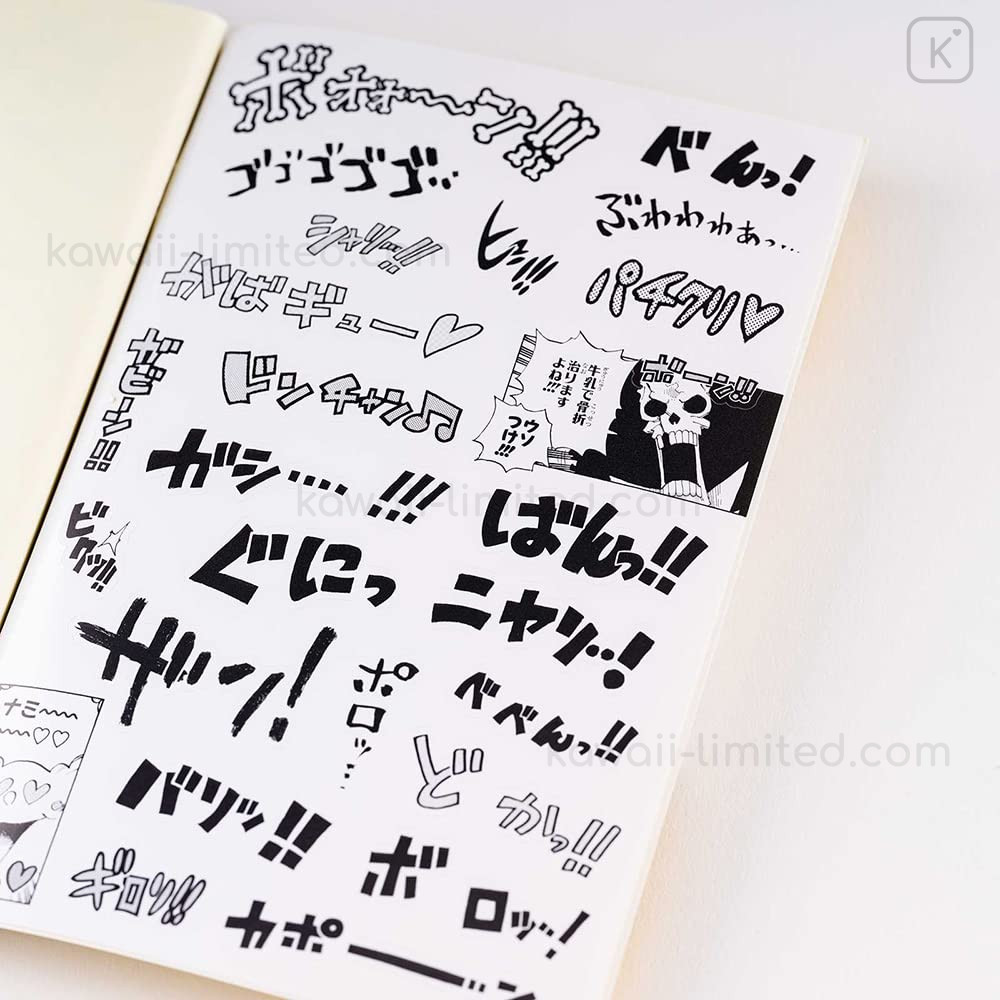 K
ボォォ〜ン!!
べんっ!
ゴゴゴゴゴ…
ぶわわわぁっ…
シャリッ!!
ヒュン!!!
kawaii-limited.com
がばギュー♡
パチクリ♡
ボーン!!
牛乳で骨折
治ります
よね!!!
ウソ
つけ!!!
ブンチャン♫
ガシ…!!!
kawaii-limited.com
ビクッ!!
ばんっ!!
ぐにっ
ニャリ…!
ザン!
ポロッ…
べべんっ!!
ナミ〜〜
〜〜♡♡
kawaii-limited.com
どかっ!!
バリッ!!
ボロッ…!
ギロッ!!
カポーン